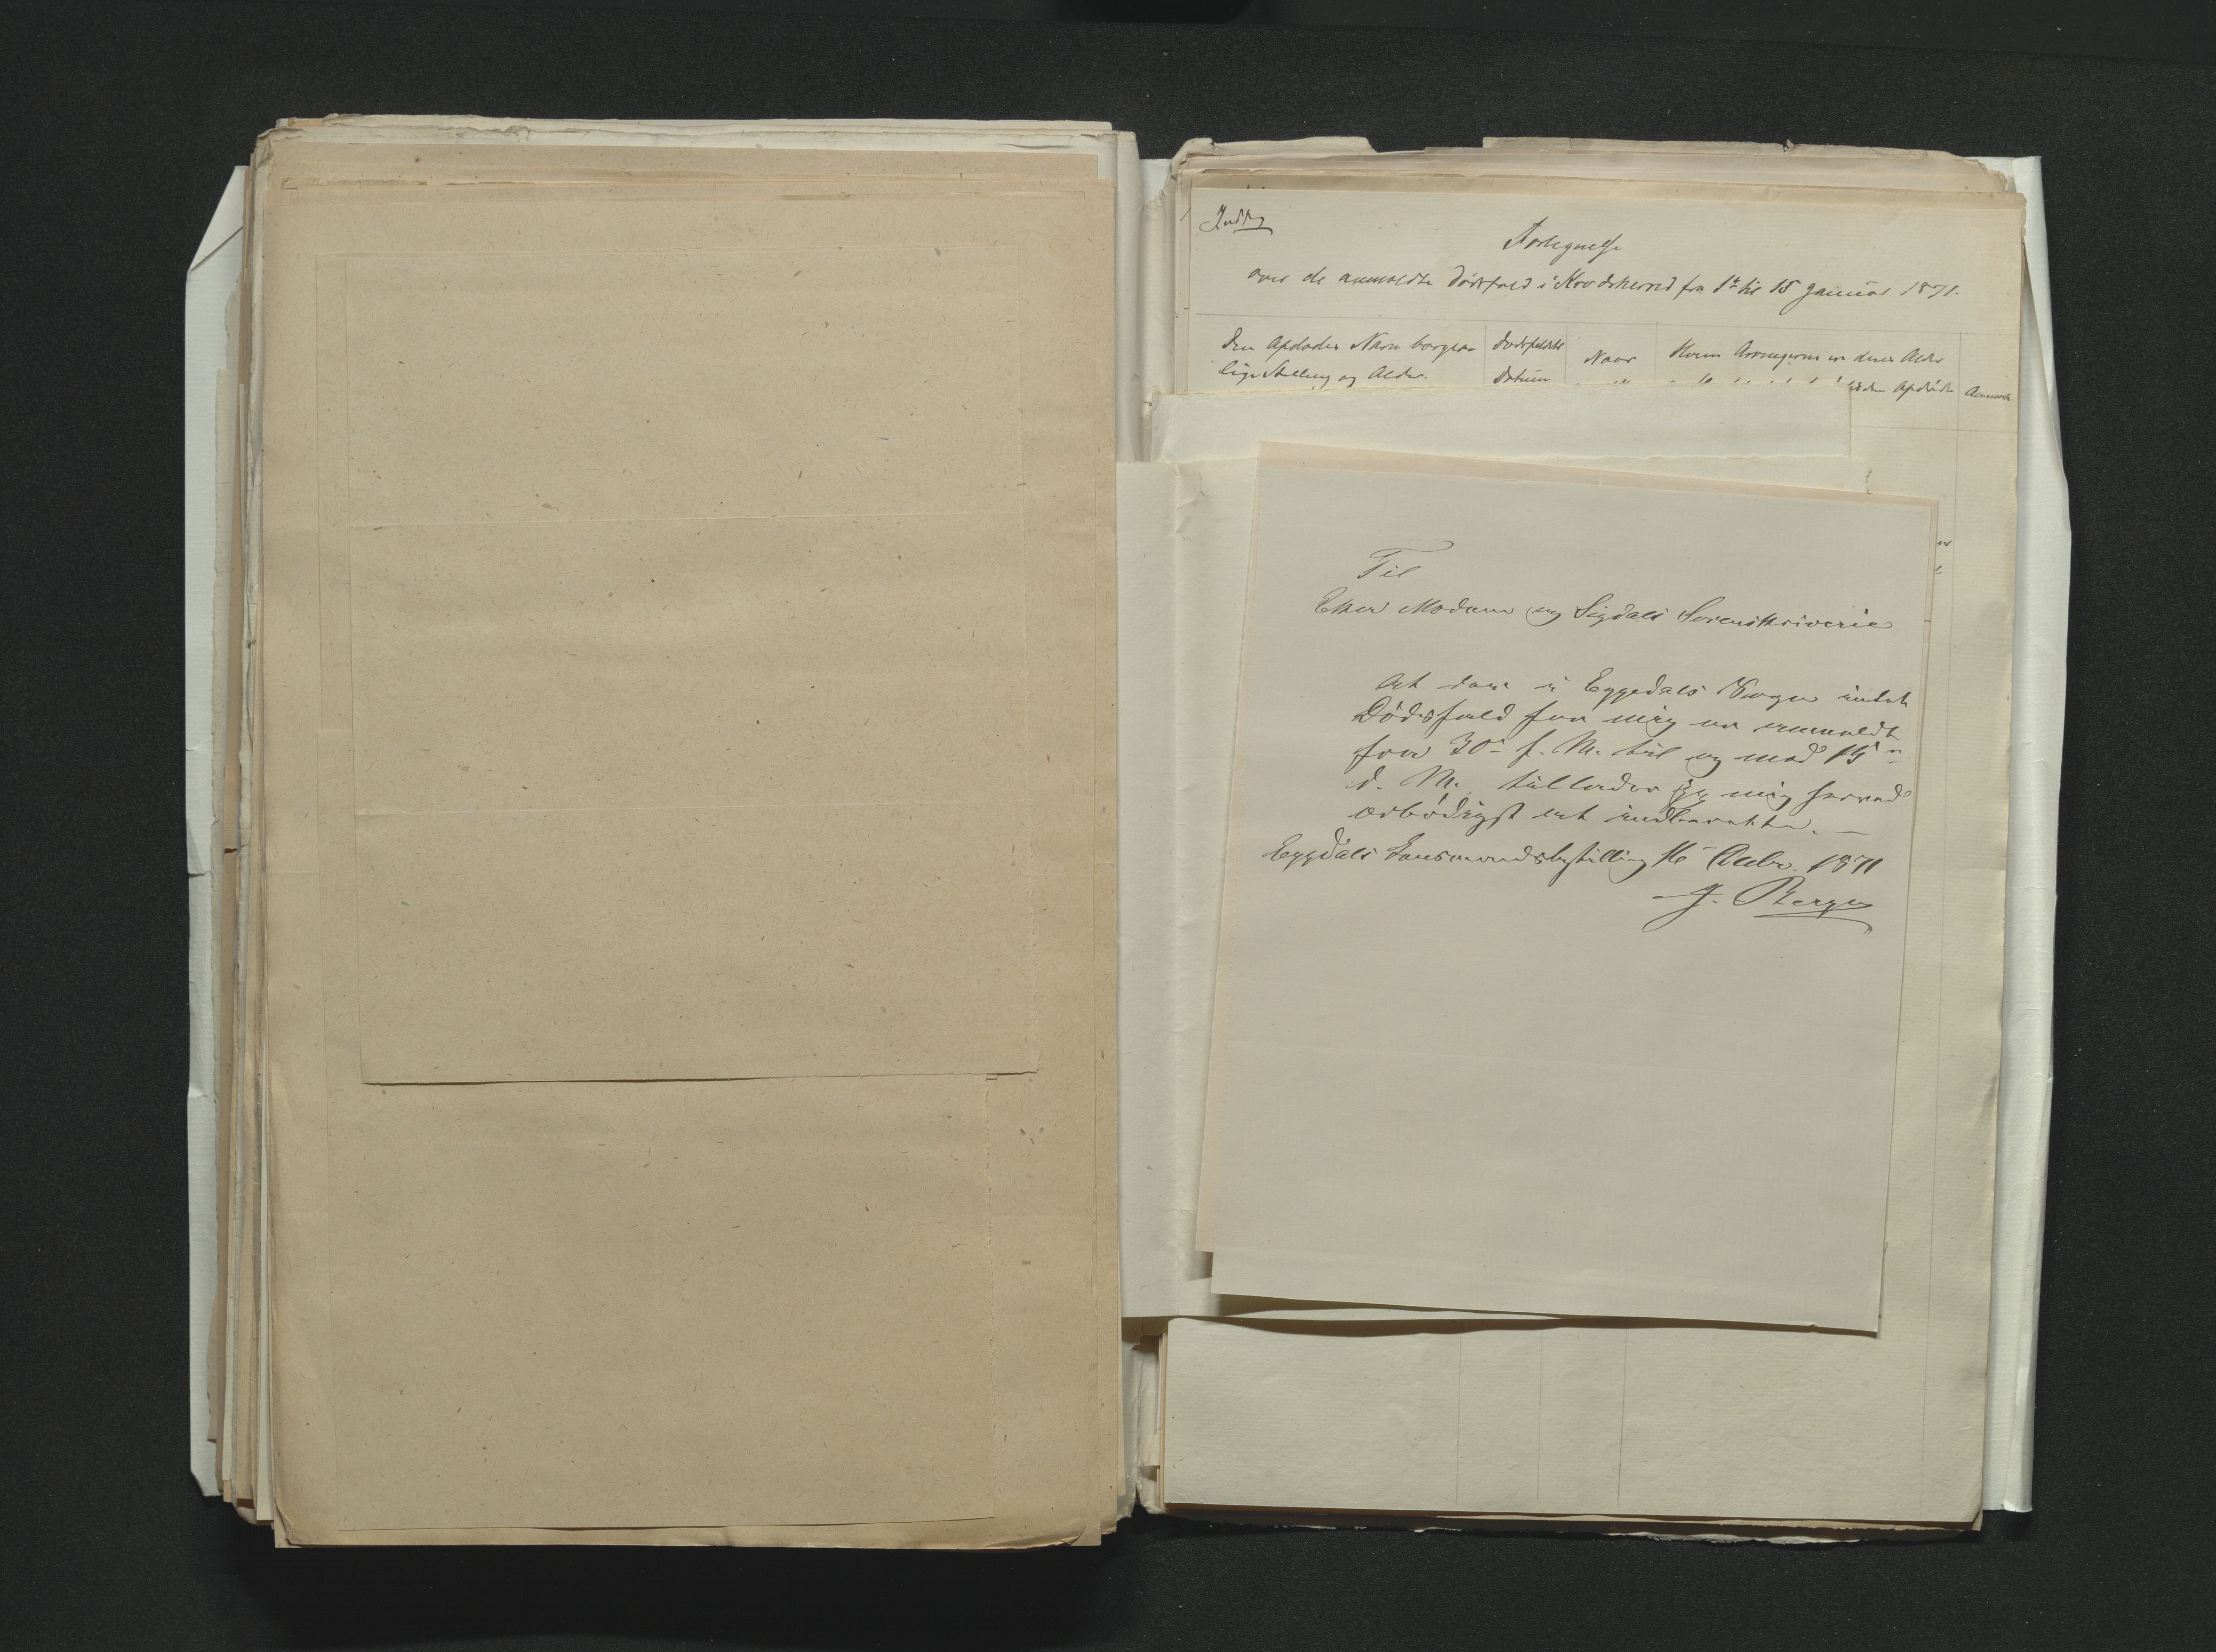 Indtg
Fortegnelse
over de anmeldte Dødsfald i Krødsherred fra 1ste til 15 Januar 1871.
Den Afdødes Navn borger-
lige Stilling og Alder.
Dødsfaldets
Datum
Naar
Hvem Arvingerne er deres Alder
den Afdøde
Anmærk
Til
Eker Modum og Sigdals Sorenskriverie
At der i Eggedals Sogn intet
Dødsfald for mig er anmeldt
fra 30te f. M. til og med 15de
d. M. tillader jeg mig herved
ærbødigst at indberette. —
Eggedals Lensmandsbestilling 16 1871
J. Berge